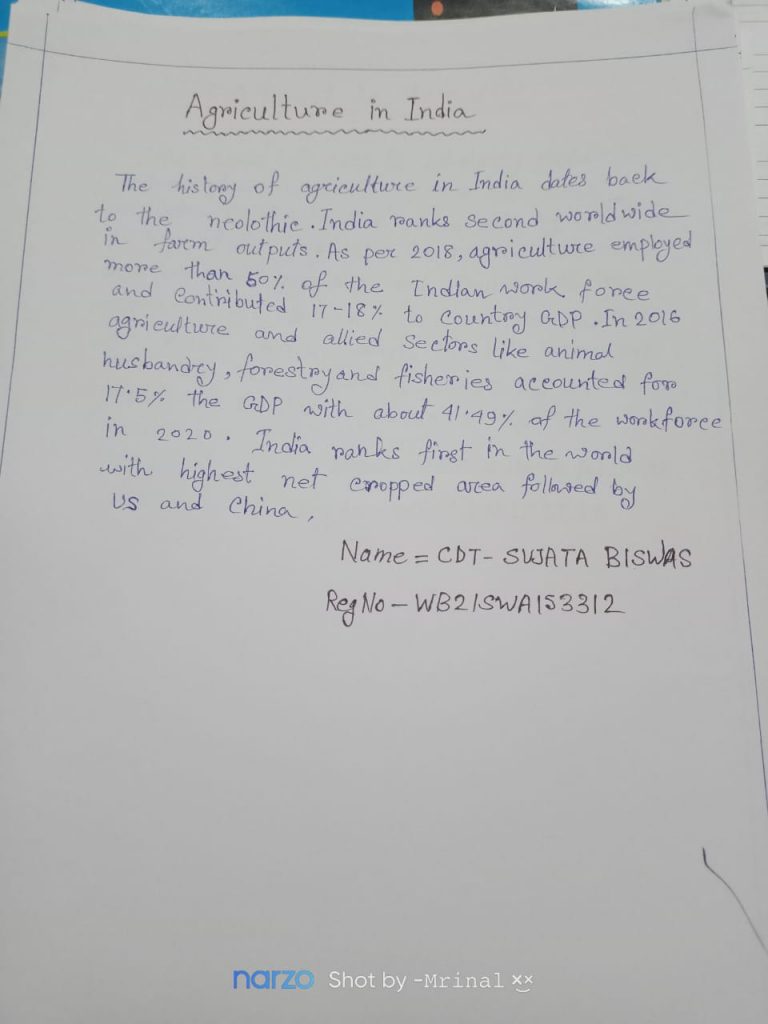 Agriculture in India
The history of agriculture in India dates back
to the neolothic. India ranks second worldwide
in farm outputs. As per 2018, agriculture employed
more than 50% of the Indian work force
and contributed 17-18% to country GDP. In 2016
agriculture and allied sectors like animal
husbandry, forestry and fisheries accounted for
17.5% the GDP with about 41.49% of the workforce
in 2020. India ranks first in the world
with highest net cropped area followed by
US and China,
Name = CDT- SUJATA BISWAS
Reg No - WB21SWA153312
narzo Shot by -Mrinal